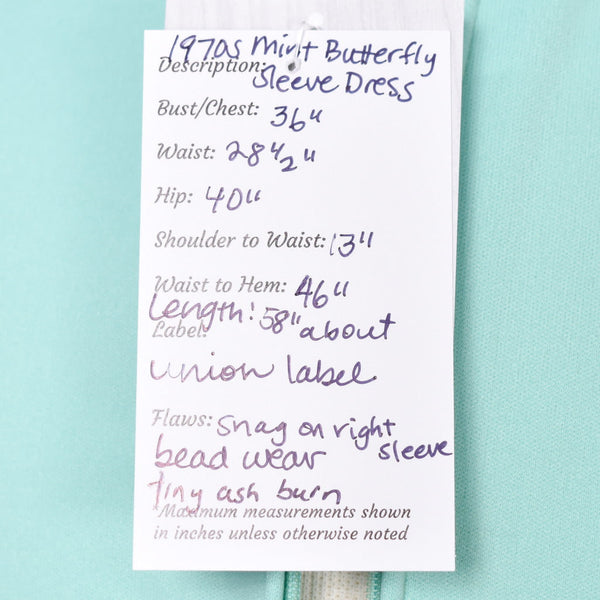 Description: 1970s Mint Butterfly
Sleeve Dress
Bust/Chest: 36"
Waist: 28 1/2"
Hip: 40"
Shoulder to Waist: 13"
Waist to Hem: 46"
Length: 58" about
Label:
union label
Flaws: Snag on right
sleeve
bead wear
tiny ash burn
*Maximum measurements shown
in inches unless otherwise noted